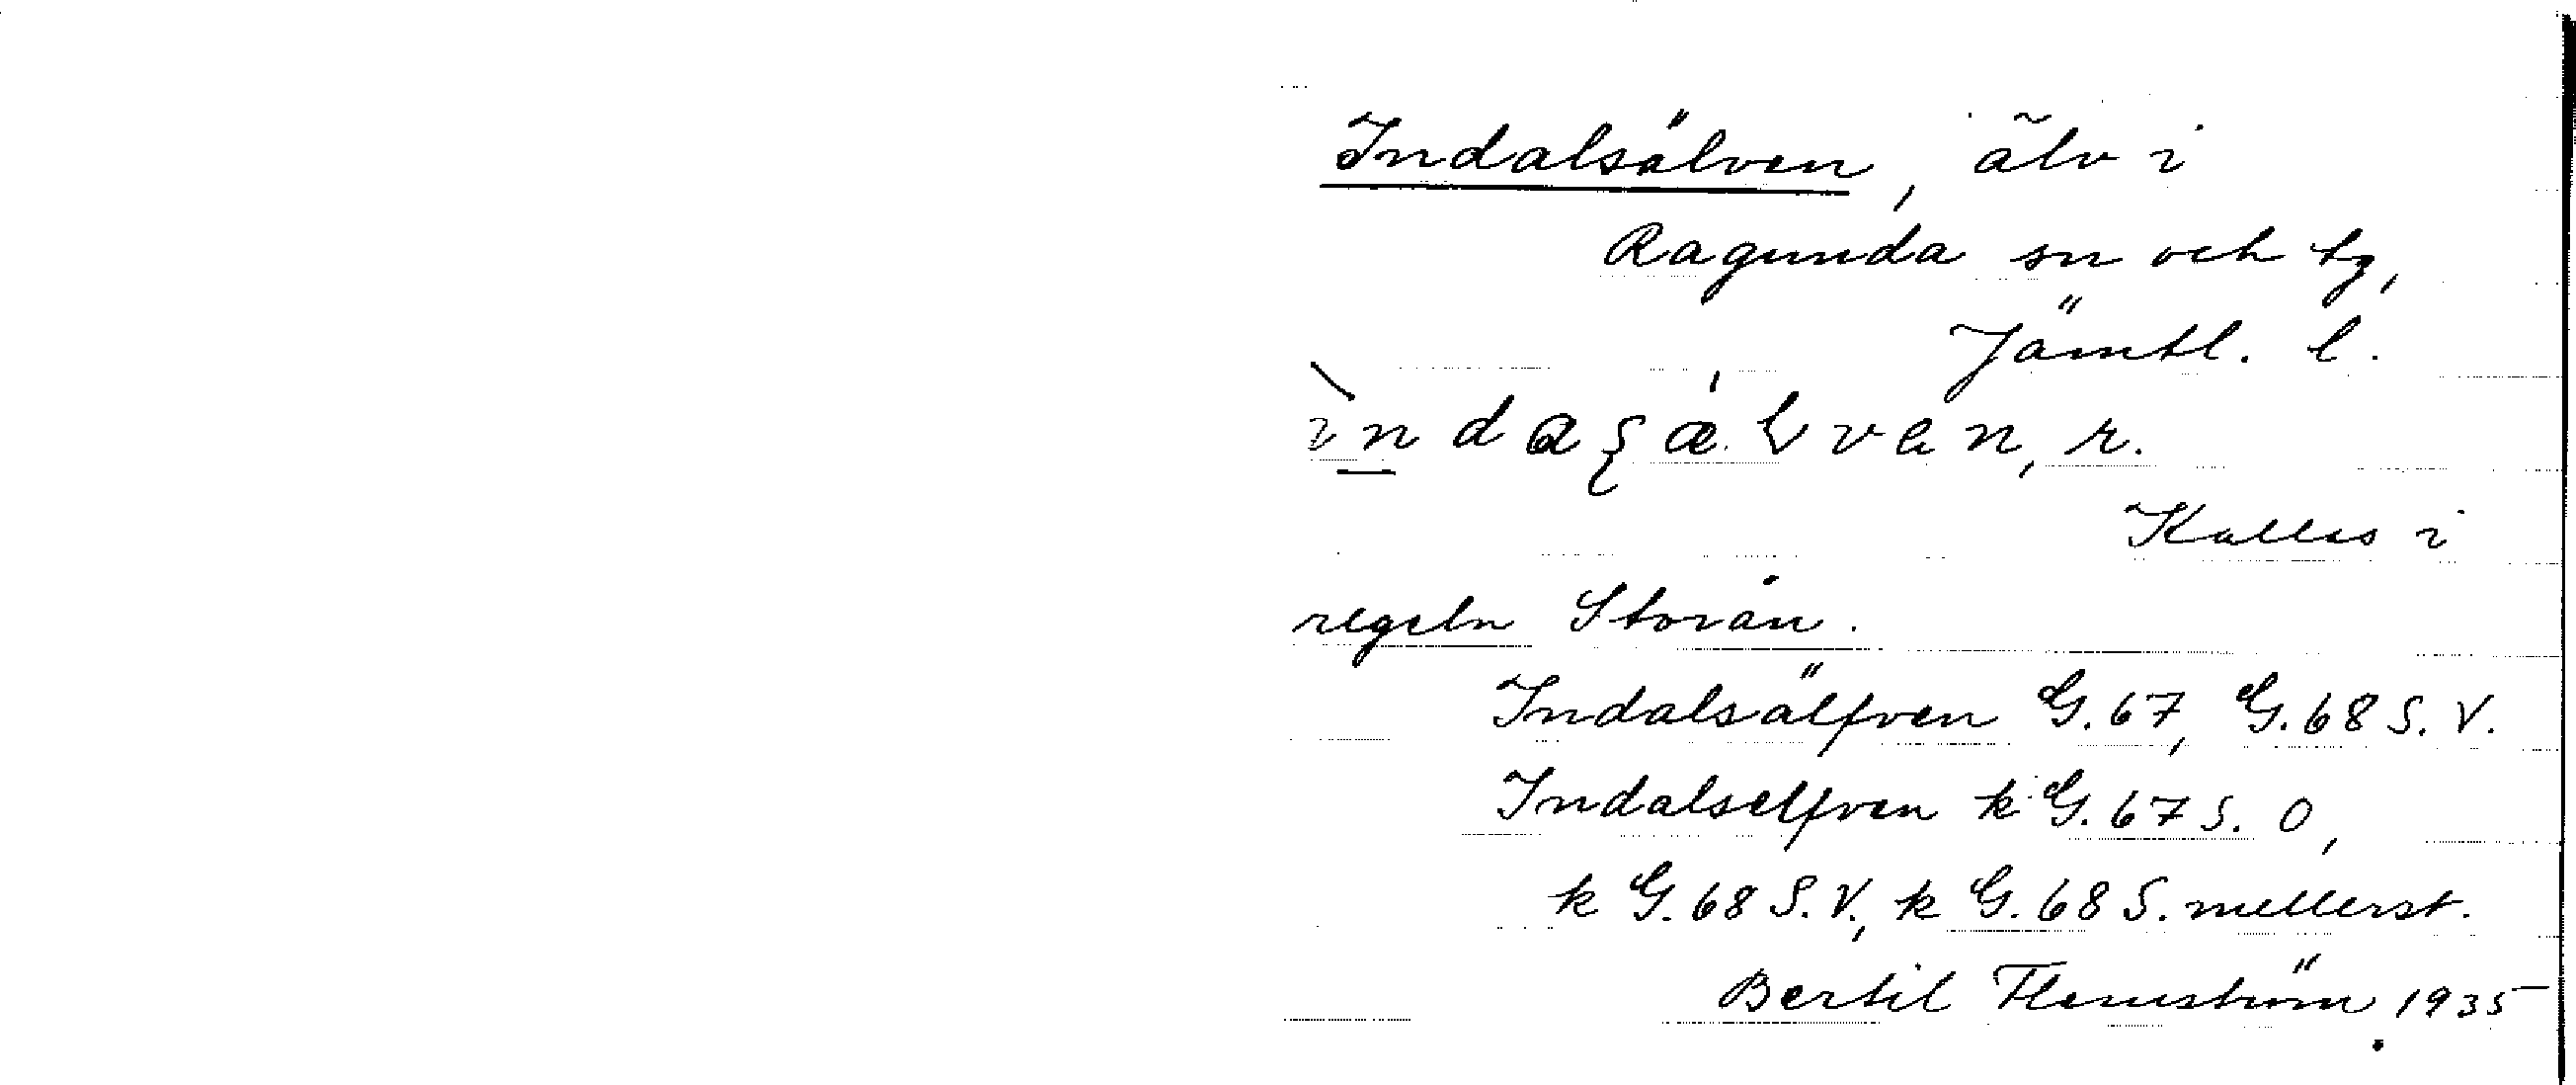 Indalsälven, älv i
Ragunda sn och tg,
Jämtl. l.
regeln Storån.
Kallas i
Indalsälfven G.67, G.68 S.V.
Indalselfven k G.67 S.O,
k G.68 S.V., k G.68 S. mellerst.
Bertil Flemström 1935